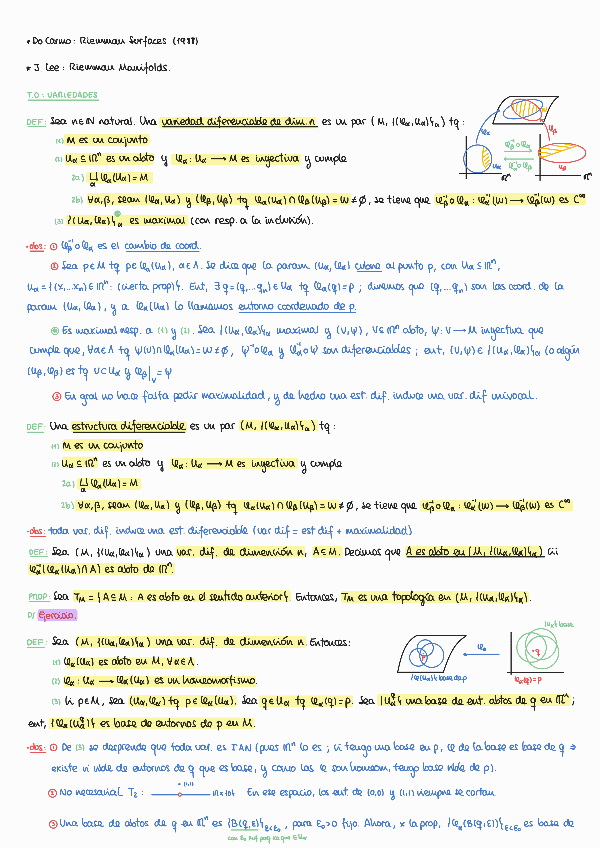 * Do Carmo: Riemman Surfaces (1988)
* J. Lee: Riemman Manifolds.
T.0: VARIEDADES
DEF: Sea n∈ℕ natural. Una variedad diferenciable de dim. n es un par (M, {(φα, Uα)}α) tq:
(1) M es un conjunto
(2) Uα ⊆ ℝⁿ es un abto y φα: Uα → M es inyectiva y cumple
2a) ⋃α φα(Uα) = M
2b) ∀α,β, sean (φα, Uα) y (φβ, Uβ) tq φα(Uα) ∩ φβ(Uβ) = W ≠ ∅, se tiene que φβ⁻¹∘φα: φα⁻¹(W) → φβ⁻¹(W) es C^∞
(3) {(Uα, φα)}α es maximal (con resp. a la inclusión).
φα
φβ
φβ⁻¹∘φα
φα⁻¹∘φβ
Uα
Uβ
ℝⁿ
ℝⁿ
·obs: ① φβ⁻¹∘φα es el cambio de coord.
② Sea p∈M tq p∈φα(Uα), α∈Λ. Se dice que la param (Uα, φα) cubre al punto p, con Uα ⊆ ℝⁿ,
Uα = {(x₁...xₙ)∈ℝⁿ: (cierta prop)}. Ent, ∃ q=(q₁...qₙ)∈Uα tq φα(q)=p; diremos que (q₁...qₙ) son las coord. de la
param (Uα, φα), y a φα(Uα) lo llamamos entorno coordenado de p.
Es maximal resp. a (1) y (2). Sea {(Uα, φα)}α maximal y (V,ψ), V⊆ℝⁿ abto, ψ: V → M inyectiva que
cumple que, ∀α∈Λ tq ψ(V)∩φα(Uα) = W ≠ ∅, ψ⁻¹∘φα y φα⁻¹∘ψ son diferenciables; ent, (V,ψ)∈{(Uα,φα)}α (o algún
(Uβ, φβ) es tq V⊂Uβ y φβ|V = ψ
③ En gral no hace falta pedir maximalidad, y de hecho una est. dif. induce una var. dif unívocal.
DEF: Una estructura diferenciable es un par (M, {(φα, Uα)}α) tq:
(1) M es un conjunto
(2) Uα ⊆ ℝⁿ es un abto y φα: Uα → M es inyectiva y cumple
2a) ⋃α φα(Uα) = M
2b) ∀α,β, sean (φα, Uα) y (φβ, Uβ) tq φα(Uα) ∩ φβ(Uβ) = W ≠ ∅, se tiene que φβ⁻¹∘φα: φα⁻¹(W) → φβ⁻¹(W) es C^∞
·obs: toda var. dif. induce una est. diferenciable (var dif = est dif + maximalidad)
DEF: Sea (M, {(Uα, φα)}α) una var. dif. de dimensión n, A⊆M. Decimos que A es abto en (M, {(Uα, φα)}α) sii
φα⁻¹(φα(Uα)∩A) es abto de ℝⁿ.
PROP: Sea T_M = {A⊆M: A es abto en el sentido anterior}. Entonces, T_M es una topología en (M, {(Uα, φα)}α).
D/ Ejercicio.
DEF: Sea (M, {(Uα, φα)}α) una var. dif. de dimensión n. Entonces:
(1) φα(Uα) es abto en M, ∀α∈Λ.
(2) φα: Uα → φα(Uα) es un homeomorfismo.
(3) Si p∈M, sea (Uα, φα) tq p∈φα(Uα). Sea q∈Uα tq φα(q)=p. Sea {Uλ^q} una base de ent. abtos de q en ℝⁿ;
ent, {φα(Uλ^q)} es base de entornos de p en M.
p
{φα(Uλ)} base de p
φα
{Uλ} base
·q
φα(q)=p
·obs: ① De (3) se desprende que toda var. es IAN (pues ℝⁿ lo es; si tengo una base en p, φ de la base es base de q ⇒
existe si nble de entornos de q que es base, y como las φ son homeom, tengo base nble de p).
② No necesariaL T₂:
(1,1)
ℝ×{0}
En ese espacio, los ent. de (0,0) y (1,1) siempre se cortan
③ Una base de abtos de q en ℝⁿ es {B(q,ε)}ε<ε₀, para ε₀>0 fijo. Ahora, x la prop, {φα(B(q,ε))}ε<ε₀ es base de